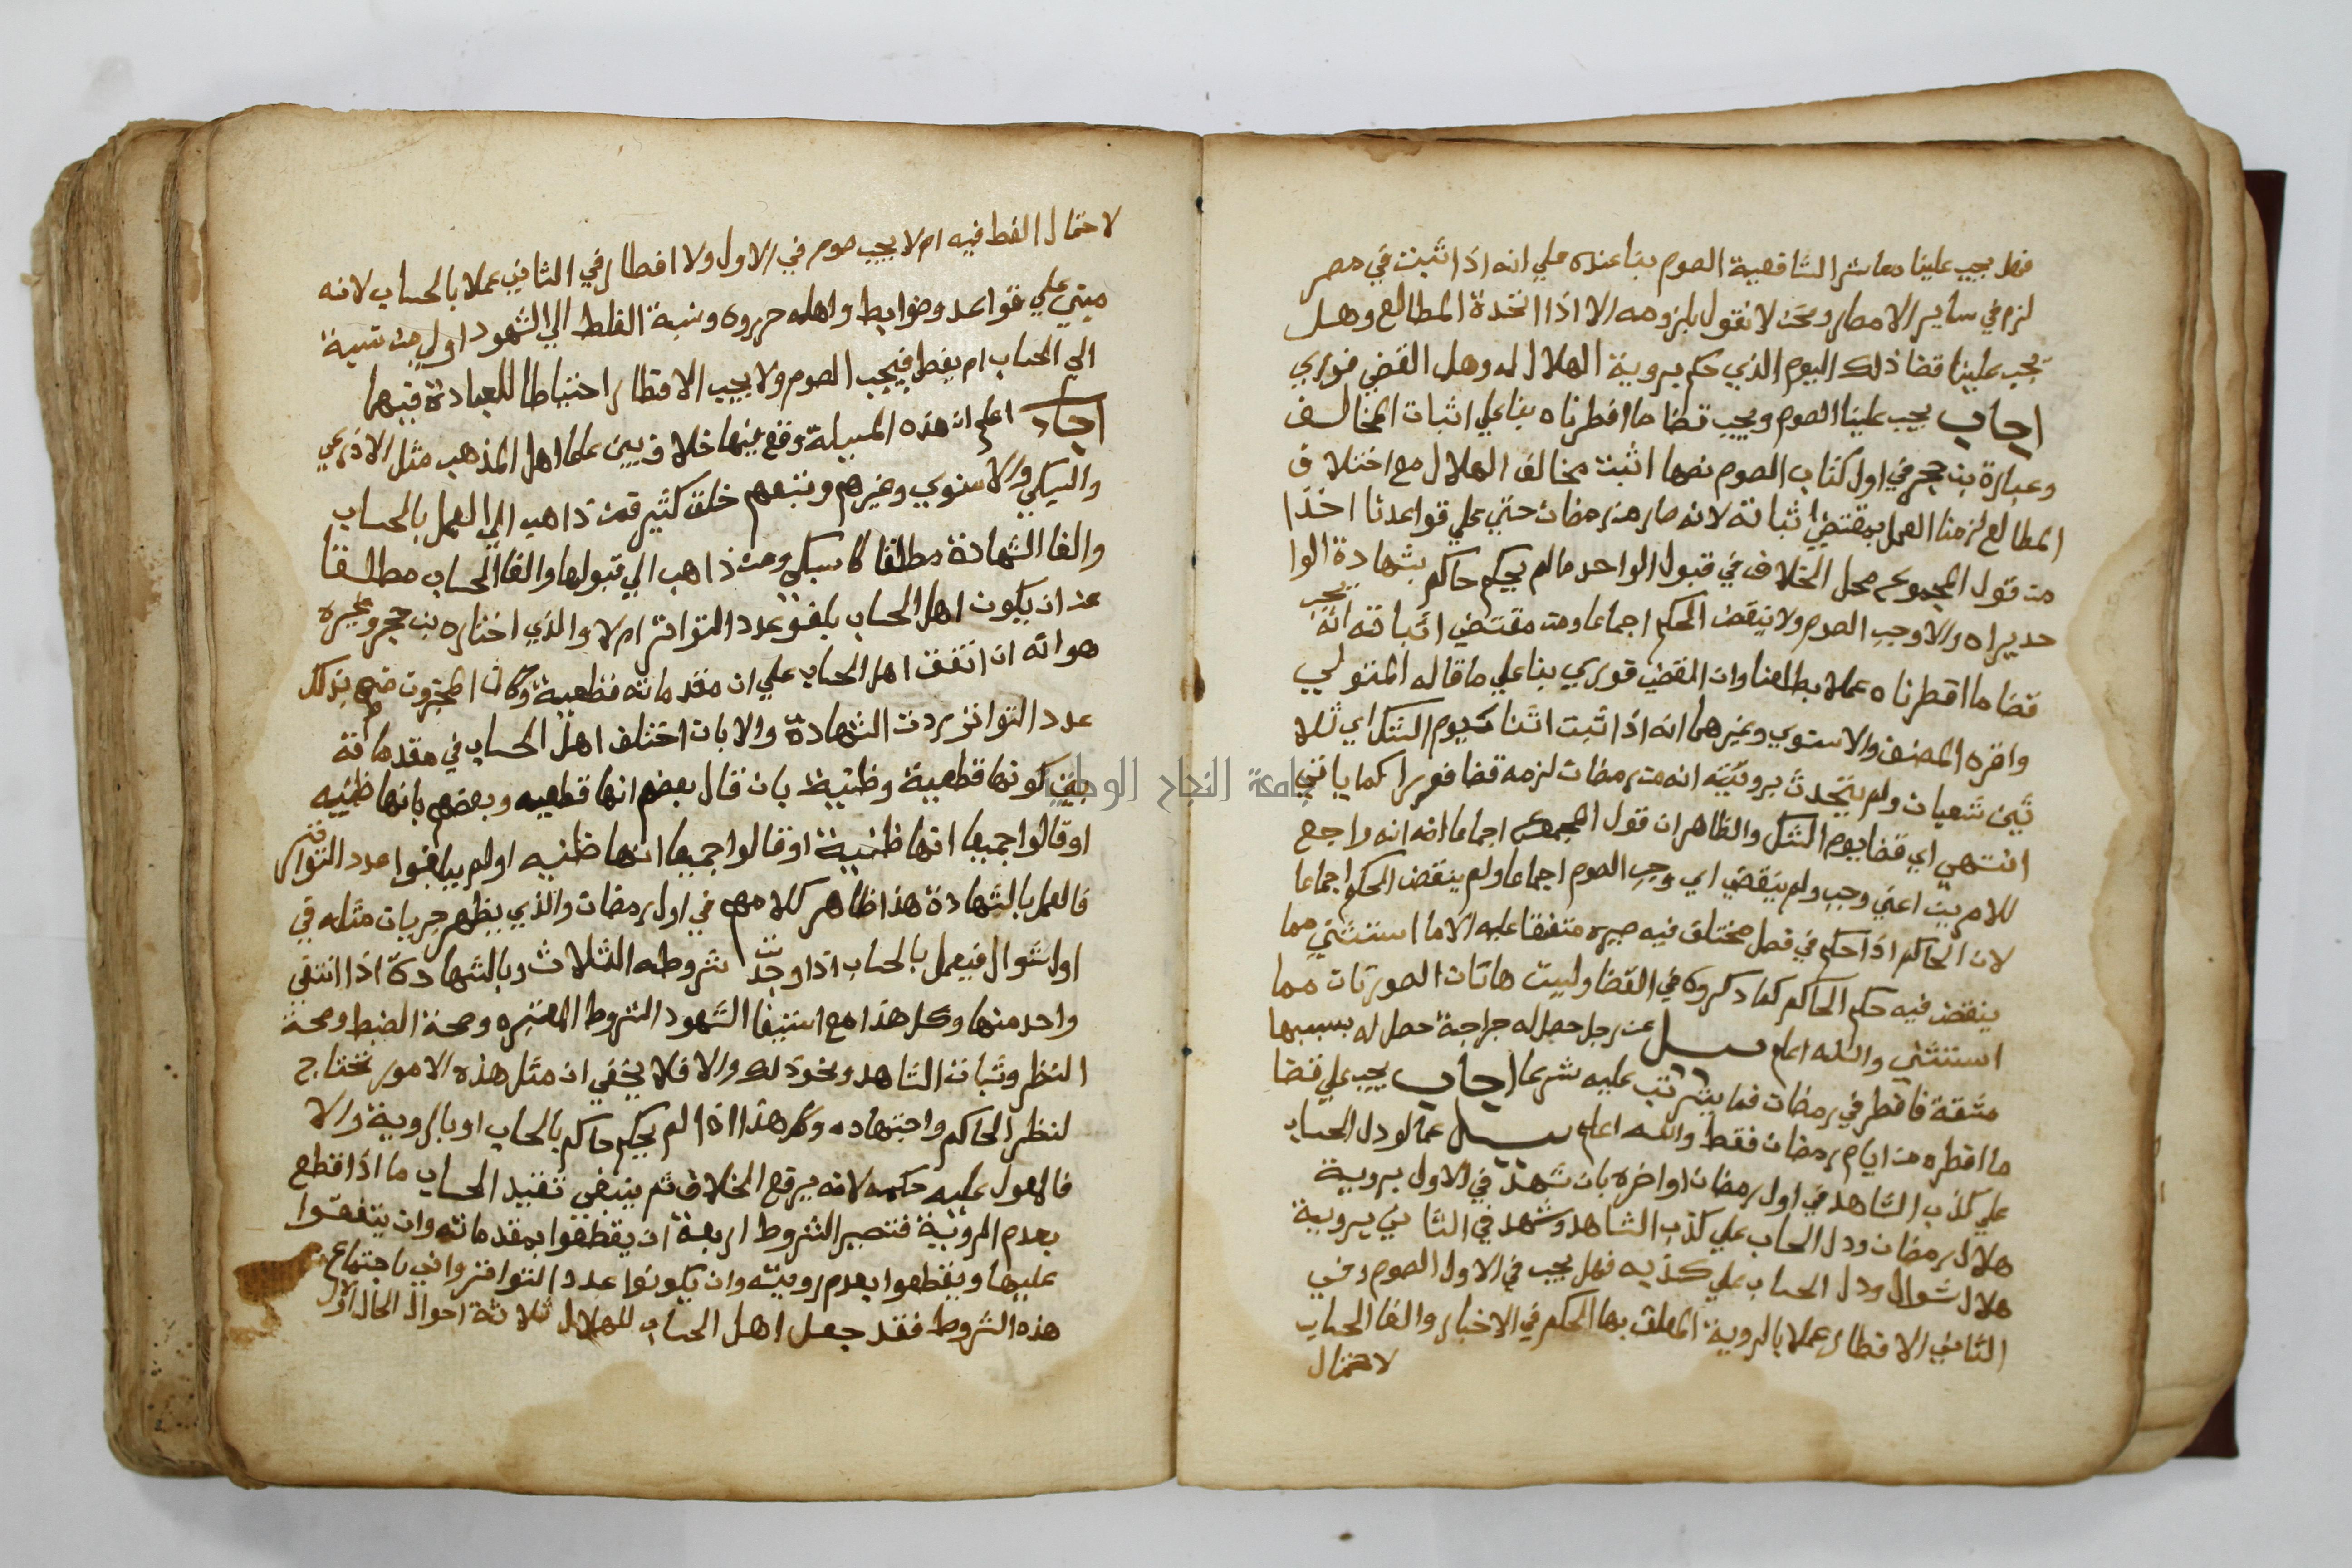 فهل يجب علينا معاشر الشافعية الصوم بناعنده علي انه اذا ثبت في مصر
لزم في ساير الامصار ونحن لا نقول بلزومه الا اذا اتحدة المطالع وهل
يجب علينا قضا ذلك اليوم الذي حكم بروية الهلال له وهل القضي فوري
اجاب يجب علينا الصوم ويجب قضا ما افطرناه بنا علي اثبات المخالف
وعبارة بن حجر في اول كتاب الصوم نصها اثبت مخالف الهلال مع اختلاف
المطالع لزمنا العمل بمقتضي اثباته لانه صار من رمضان حتي علي قواعدنا اخذا
من قول المجموع محل الخلاف في قبول الواحد مالم يحكم حاكم بشهادة الوا
حد يراه والا وجب الصوم ولا ينقض الحكم اجماعا ومن مقتضي اثباته انه يجب
قضا ما افطرناه عملا بطالعنا وان القضي فوري بنا علي ما قاله المتولي
واقره المصنف والاسنوي وغيرهما انه اذا ثبت اثنا يوم الشك اي ثلا
ثين شعبان ولم يتحدث برويته انه من رمضان لزمه قضا فورا كما ياتي
انتهي اي قضا يوم الشك والظاهر ان قول المجموع اجماعا انه راجع
للامرين اعني وجب ولم ينقض اي وجب الصوم اجماعا ولم ينقض الحكم اجماعا
لان الحاكم اذا حكم في فصل مختلف فيه صيره متفقا عليه الا ما استثني مما
ينقض فيه حكم الحاكم كما ذكروه في القضا وليست هاتان الصورتان مما
استثني والله اعلم سيل عن رجل حصل له جراحة حصل له بسببها
مشقة فافطر في رمضان فما يترتب عليه شرعا اجاب يجب علي قضا
ما افطره من ايام رمضان فقط والله اعلم سيل عما لو دل الحساب
علي كذب الشاهد في اول رمضان او اخره بان شهد في الاول بروية
هلال رمضان ودل الحساب علي كذب الشاهد وشهد في الثاني بروية
هلال شوال ودل الحساب علي كذبه فهل يجب في الاول الصوم وفي
الثاني الافطار عملا بالروية المعلق بها الحكم في الاخبار والغا الحساب
لاحتمال
لاحتمال الغلط فيه ام لا يجب صوم في الاول ولا افطار في الثاني عملا بالحساب لانه
مبني علي قواعد وضوابط واهله حرروه ونسبة الغلط الي الشهود اولي من نسبة
الي الحساب ام يفصل فيجب الصوم ولا يجب الافطار احتياطا للعبادة فيهما
اجاب اعلم ان هذه المسيلة وقع فيها خلاف بين علما اهل المذهب مثل الاذرعي
والسبكي والاسنوي وغيرهم وتبعهم خلق كثير فمن ذاهب الي العمل بالحساب
والغا الشهادة مطلقا كالسبكي ومن ذاهب الي قبولها والغا الحساب مطلقا
عن ان يكون اهل الحساب بلغو عدد التواتر ام لا والذي اختاره بن حجر وغيره
هو انه ان اتفق اهل الحساب علي ان مقدماته قطعية وكان المخبرون منهم بذلك
عدد التواتر ردت الشهادة والا بان اختلف اهل الحساب في مقدماته
بين كونها قطعية وظنية بان قال بعضهم انها قطعيه وبعضهم بانها ظنيه
او قالوا جميعا انها ظنية اوقالوا جميعا انها ظنيه اولم يبلغوا عدد التواتر
فالعمل بالشهادة هذا ظاهر كلامهم في اول رمضان والذي يظهر جريان مثله في
اول شوال فيعمل بالحساب اذا وجدت شروطه الثلاث وبالشهادة اذا انتفي
واحد منها وكل هذا مع استيفا الشهود الشروط المعتبره وصحة الضبط وصحة
النظر وثبات الشاهد ونحو ذلك والا فلا يخفي ان مثل هذه الامور تحتاج
لنظر الحاكم واجتهاده وكل هذا اذا لم يحكم حاكم بالحساب او بالروية والا
فالمعول عليه حكمه لانه يرفع الخلاف ثم ينبغي تقييد الحساب ما اذا قطع
بعدم الروية فتصير الشروط اربعة ان يقطعوا بمقدماته وان يتفقوا
عليها ويقطعوا بعدم رويته وان يكونوا عدد التواتر واني باجتماع
هذه الشروط فقد جعل اهل الحساب للهلال ثلاثة احوال الحال الاول
جامعة النجاح الوطنية